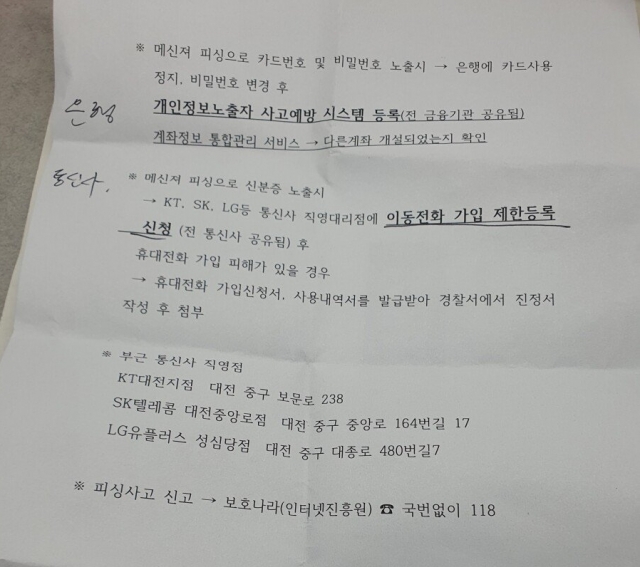 ※ 메신져 피싱으로 카드번호 및 비밀번호 노출시 → 은행에 카드사용
정지, 비밀번호 변경 후
은행
개인정보노출자 사고예방 시스템 등록(전 금융기관 공유됨)
계좌정보 통합관리 서비스 → 다른계좌 개설되었는지 확인
통신사.
※ 메신져 피싱으로 신분증 노출시
→ KT, SK, LG등 통신사 직영대리점에 이동전화 가입 제한등록
신청 (전 통신사 공유됨) 후
휴대전화 가입 피해가 있을 경우
→ 휴대전화 가입신청서, 사용내역서를 발급받아 경찰서에서 진정서
작성 후 첨부
※ 부근 통신사 직영점
KT대전지점 대전 중구 보문로 238
SK텔레콤 대전중앙로점 대전 중구 중앙로 164번길 17
LG유플러스 성심당점 대전 중구 대종로 480번길7
※ 피싱사고 신고 → 보호나라(인터넷진흥원) ☎ 국번없이 118